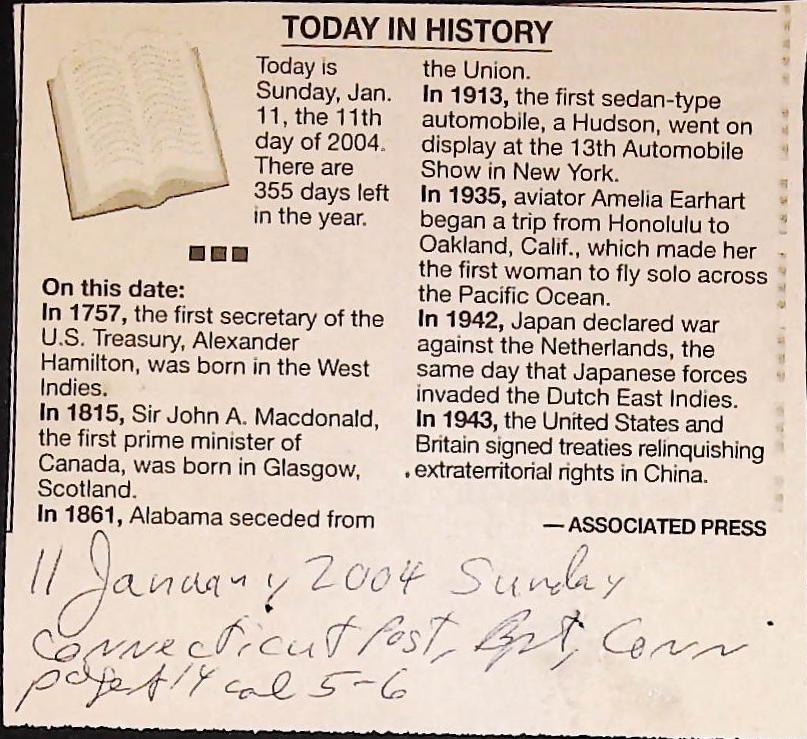 TODAY IN HISTORY
Today is
Sunday, Jan.
11, the 11th
day of 2004.
There are
355 days left
in the year.
On this date:
In 1757, the first secretary of the
U.S. Treasury, Alexander
Hamilton, was born in the West
Indies.
In 1815, Sir John A. Macdonald,
the first prime minister of
Canada, was born in Glasgow,
Scotland.
In 1861, Alabama seceded from
the Union.
In 1913, the first sedan-type
automobile, a Hudson, went on
display at the 13th Automobile
Show in New York.
In 1935, aviator Amelia Earhart
began a trip from Honolulu to
Oakland, Calif., which made her
the first woman to fly solo across
the Pacific Ocean.
In 1942, Japan declared war
against the Netherlands, the
same day that Japanese forces
invaded the Dutch East Indies.
In 1943, the United States and
Britain signed treaties relinquishing
extraterritorial rights in China.
— ASSOCIATED PRESS
11 January 2004 Sunday
Connecticut Post, Bpt, Conn
page A14 col 5-6